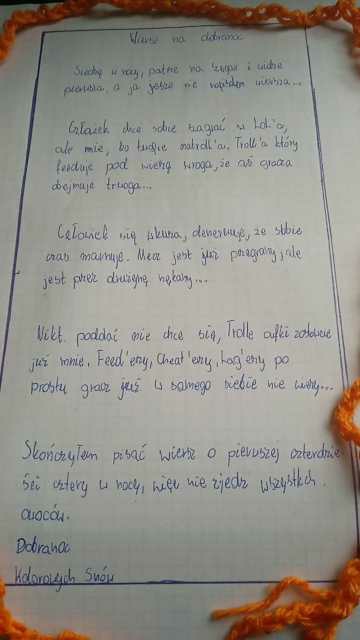 Wiersz na dobranoc
Siedzę w nocy, patrzę na i widzę
pierwsza, a ja jeszcze nie napisałem wiersza...
Człowiek chce sobie zagrać w LoL'a,
ale nie, bo będzie Troll'a który
feeduje pod wieżą wroga, że aż gracza
obejmuje trwoga...
Człowiek się wkurza, denerwuje, że sobie
czas marnuje. Mecz jest już przegrany, ale
jest przez drużynę nękany...
Nikt poddać nie chce się, Trolle
już mnie. Feed'erzy, Cheat'erzy, Lag'erzy po
prostu gracz już w samego siebie nie wierzy...
Skończyłem pisać wiersz o pierwszej czterdzie
ści cztery w nocy, więc nie zjedz wszystkich
owoców.
Dobranoc
Kolorowych Snów